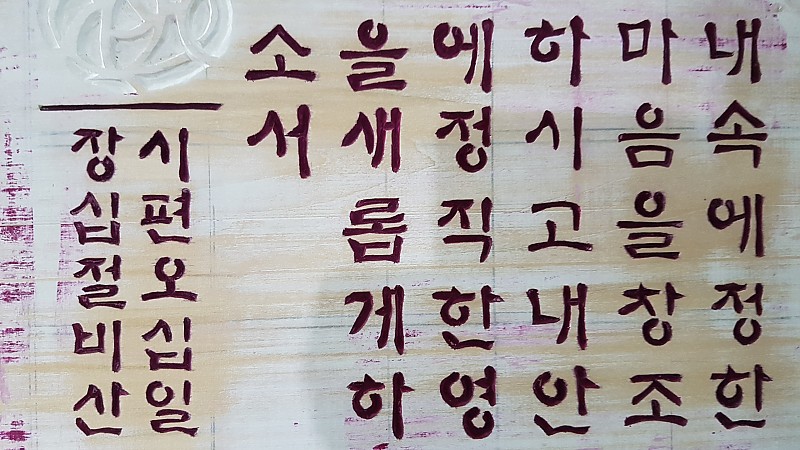 내속에정한
마음을창조
하시고내안
에정직한영
을새롬게하
소서
시편오십일
장십절비산